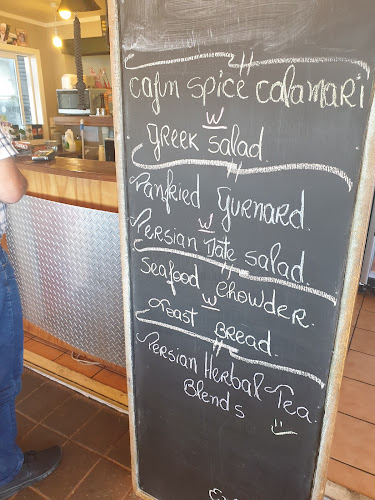 Cajun Spice Calamari
w
Greek Salad
Panfried Gurnard.
w
Persian Date Salad.
Seafood Chowder.
w
Toast Bread.
Persian Herbal Tea
Blends